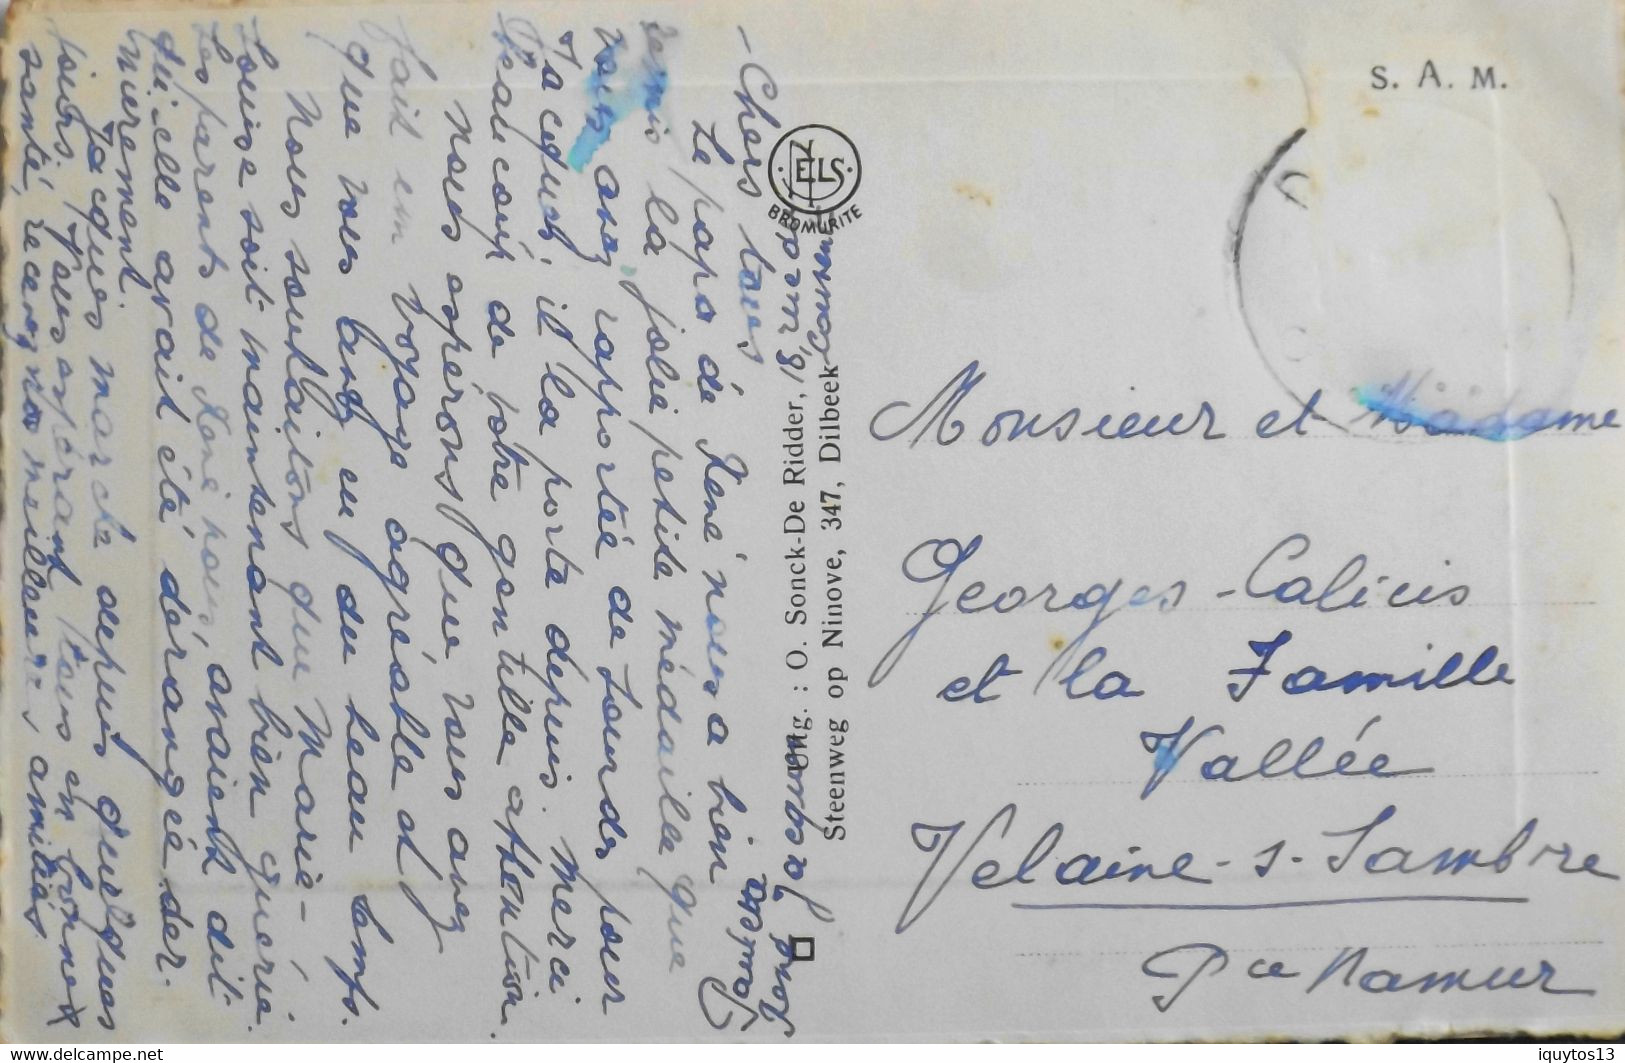 Chers tous
Le papa de René nous a bien
remis la jolie petite médaille que
vous avez rapportée de Lourdes pour
Jacques, il la porte depuis. Merci
beaucoup de votre gentille attention.
Nous espérons que vous avez
fait un voyage agréable et
que vous avez eu du beau temps.
Nous souhaitons que Marie-
Louise soit maintenant bien guérie.
Les parents de René nous avaient dit
qu'elle avait été dérangée der-
nièrement.
Jacques marche depuis quelques
jours. Vous espérant tous en bonne
santé, recevez nos meilleures amitiés.
S. A. M.
NELS
BROMURITE
Uitg. : O. Sonck-De Ridder,
Steenweg op Ninove, 347, Dilbeek
Monsieur et Madame
Georges-Calicis
et la Famille
Vallée
Velaine-s-Sambre
Pce Namur
delcampe.net
iquytos13